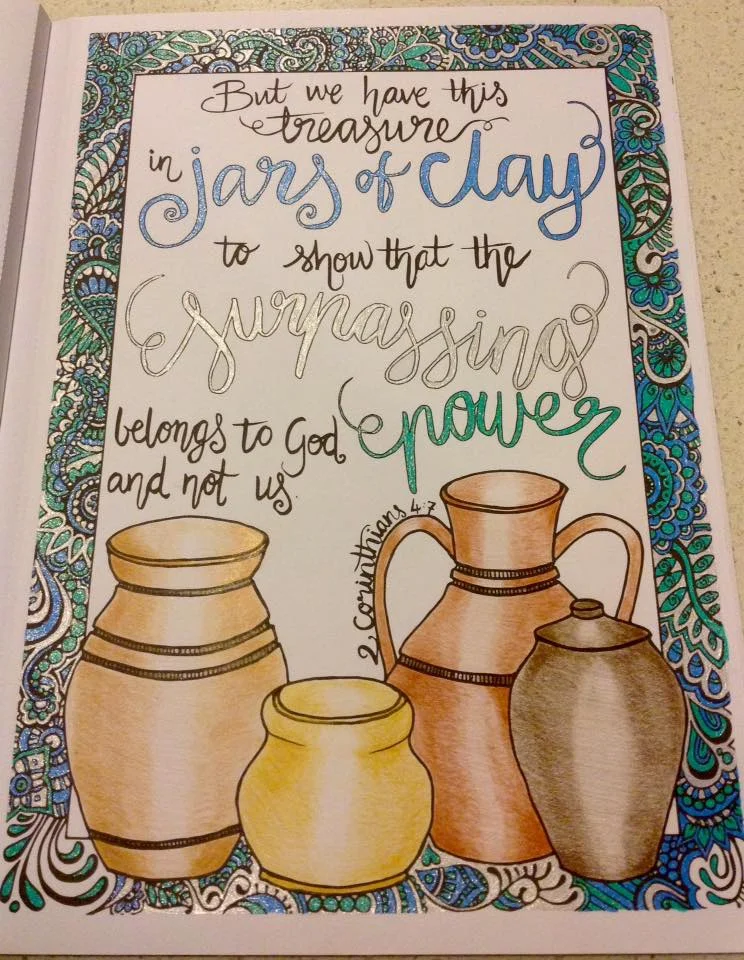 But we have this
treasure
in jars of clay
to show that the
surpassing
power
belongs to God
and not us.
2 Corinthians 4:7